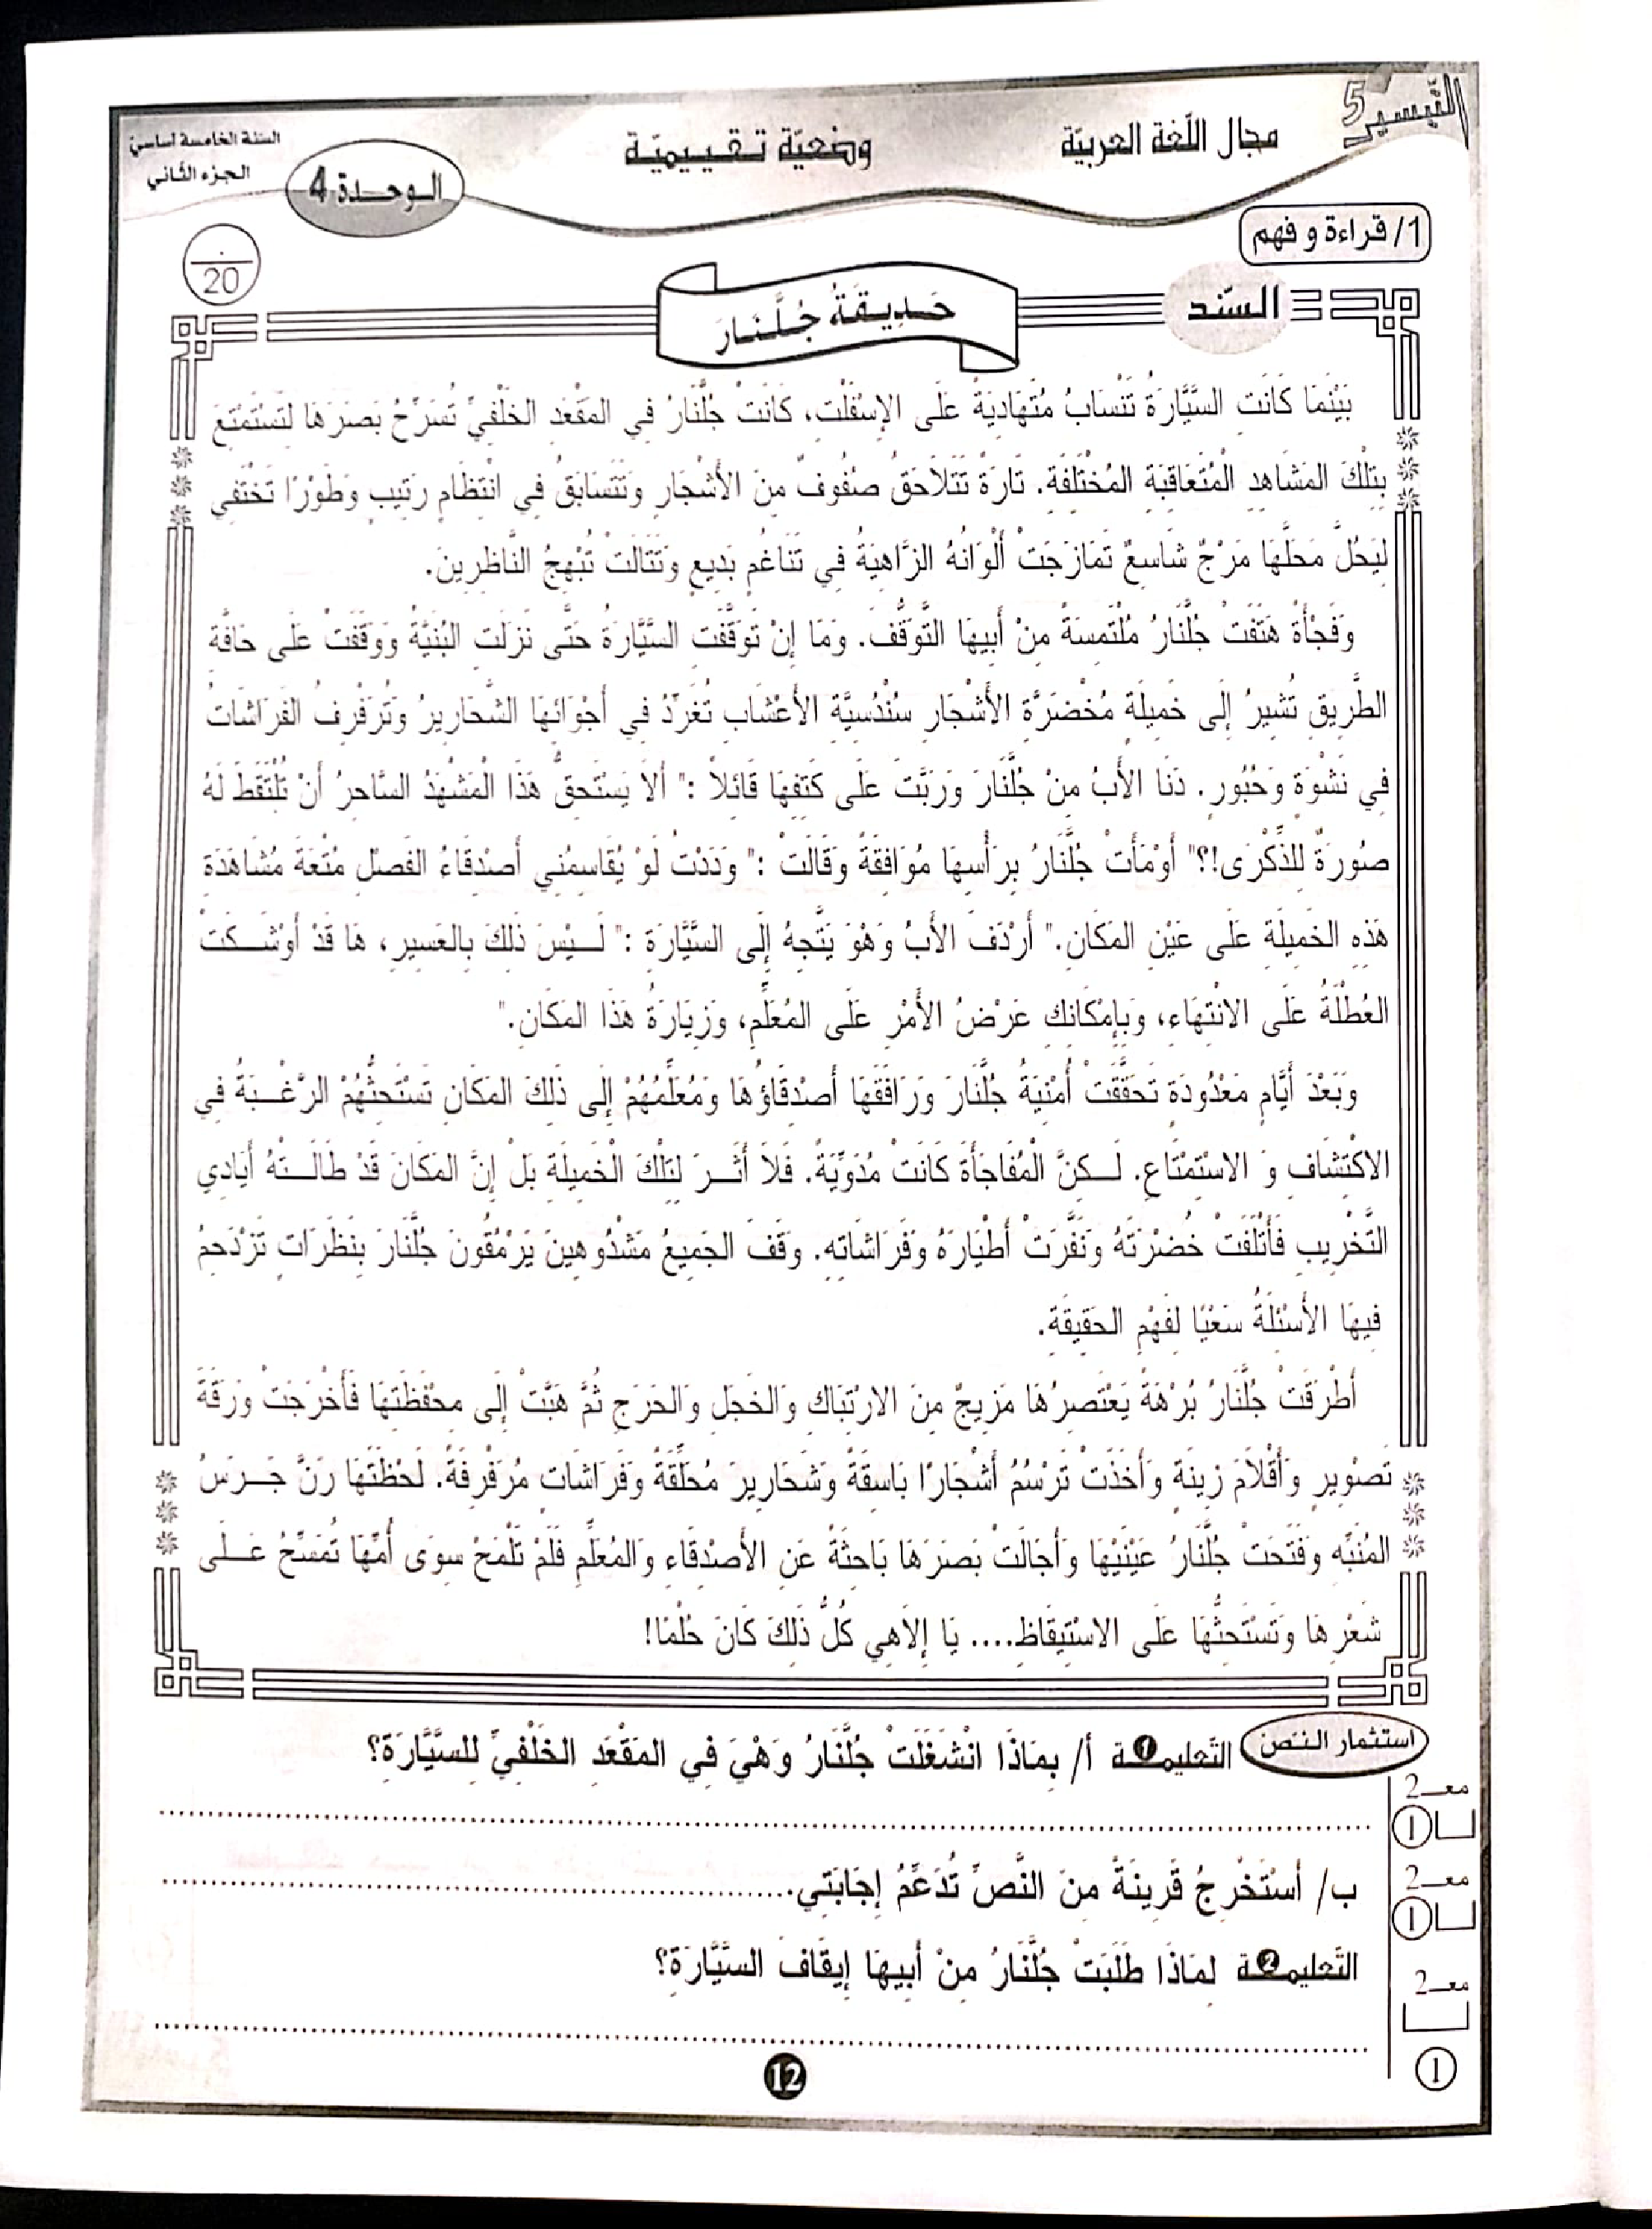 التيسير 5
مجال اللّغة العربيّة
وضعيّة تقييميّة
السنة الخامسة أساسي
الجزء الثّاني
الوحدة 4
1/ قراءة و فهم
20
السّند
حَدِيقَةُ جُلَّنَارَ
بَيْنَمَا كَانَتِ السَّيَّارَةُ تَنْسَابُ مُتَهَادِيَةً عَلَى الإِسْفَلْتِ، كَانَتْ جُلَّنَارُ فِي المَقْعَدِ الخَلْفِيِّ تُسَرِّحُ بَصَرَهَا لِتَسْتَمْتِعَ
بِتِلْكَ المَشَاهِدِ الْمُتَعَاقِبَةِ المُخْتَلِفَةِ. تَارَةً تَتَلاَحَقُ صُفُوفٌ مِنَ الأَشْجَارِ وَتَتَسَابَقُ فِي انْتِظَامٍ رَتِيبٍ وَطَوْرًا تَخْتَفِي
لِيَحُلَّ مَحَلَّهَا مَرْجٌ شَاسِعٌ تَمَازَجَتْ أَلْوَانُهُ الزَّاهِيَةُ فِي تَنَاغُمٍ بَدِيعٍ وَتَتَالَتْ تُبْهِجُ النَّاظِرِينَ.
وَفَجْأَةً هَتَفَتْ جُلَّنَارُ مُلْتَمِسَةً مِنْ أَبِيهَا التَّوَقُّفَ. وَمَا إِنْ تَوَقَّفَتِ السَّيَّارَةُ حَتَّى نَزَلَتِ البُنَيَّةُ وَوَقَفَتْ عَلَى حَافَّةِ
الطَّرِيقِ تُشِيرُ إِلَى خَمِيلَةٍ مُخْضَرَّةِ الأَشْجَارِ سُنْدُسِيَّةِ الأَعْشَابِ تُغَرِّدُ فِي أَجْوَائِهَا الشَّحَارِيرُ وَتُرَفْرِفُ الفَرَاشَاتُ
فِي نَشْوَةٍ وَحُبُورٍ. دَنَا الأَبُ مِنْ جُلَّنَارَ وَرَبَّتَ عَلَى كَتِفِهَا قَائِلاً :" أَلاَ يَسْتَحِقُّ هَذَا الْمَشْهَدُ السَّاحِرُ أَنْ تُلْتَقَطَ لَهُ
صُورَةٌ لِلذِّكْرَى!؟" أَوْمَأَتْ جُلَّنَارُ بِرَأْسِهَا مُوَافِقَةً وَقَالَتْ :" وَدَدْتُ لَوْ يُقَاسِمُنِي أَصْدِقَاءُ الفَصْلِ مُتْعَةَ مُشَاهَدَةِ
هَذِهِ الخَمِيلَةِ عَلَى عَيْنِ المَكَانِ." أَرْدَفَ الأَبُ وَهْوَ يَتَّجِهُ إِلَى السَّيَّارَةِ :" لَيْسَ ذَلِكَ بِالعَسِيرِ، هَا قَدْ أَوْشَكَتْ
العُطْلَةُ عَلَى الانْتِهَاءِ، وَبِإِمْكَانِكِ عَرْضُ الأَمْرِ عَلَى المُعَلِّمِ، وَزِيَارَةُ هَذَا المَكَانِ."
وَبَعْدَ أَيَّامٍ مَعْدُودَةٍ تَحَقَّقَتْ أُمْنِيَةُ جُلَّنَارَ وَرَافَقَهَا أَصْدِقَاؤُهَا وَمُعَلِّمُهُمْ إِلَى ذَلِكَ المَكَانِ تَسْتَحِثُّهُمْ الرَّغْبَةُ فِي
الاكْتِشَافِ وَ الاسْتِمْتَاعِ. لَكِنَّ الْمُفَاجَأَةَ كَانَتْ مُدَوِّيَةً. فَلاَ أَثَرَ لِتِلْكَ الْخَمِيلَةِ بَلْ إِنَّ المَكَانَ قَدْ طَالَتْهُ أَيَادِي
التَّخْرِيبِ فَأَتْلَفَتْ خُضْرَتَهُ وَنَفَّرَتْ أَطْيَارَهُ وَفَرَاشَاتِهِ. وَقَفَ الجَمِيعُ مَشْدُوهِينَ يَرْمُقُونَ جُلَّنَارَ بِنَظَرَاتٍ تَزْدَحِمُ
فِيهَا الأَسْئِلَةُ سَعْيًا لِفَهْمِ الحَقِيقَةِ.
أَطْرَقَتْ جُلَّنَارُ بُرْهَةً يَعْتَصِرُهَا مَزِيجٌ مِنَ الارْتِبَاكِ وَالخَجَلِ وَالحَرَجِ ثُمَّ هَبَّتْ إِلَى مِحْفَظَتِهَا فَأَخْرَجَتْ وَرَقَةَ
تَصْوِيرٍ وَأَقْلاَمَ زِينَةٍ وَأَخَذَتْ تَرْسُمُ أَشْجَارًا بَاسِقَةً وَشَحَارِيرَ مُحَلِّقَةً وَفَرَاشَاتٍ مُرَفْرِفَةً. لَحْظَتَهَا رَنَّ جَرَسُ
المُنَبِّهِ وَفَتَحَتْ جُلَّنَارُ عَيْنَيْهَا وَأَجَالَتْ بَصَرَهَا بَاحِثَةً عَنِ الأَصْدِقَاءِ وَالمُعَلِّمِ فَلَمْ تَلْمَحْ سِوَى أُمِّهَا تُمَسِّحُ عَلَى
شَعْرِهَا وَتَسْتَحِثُّهَا عَلَى الاسْتِيقَاظِ.... يَا إِلاَهِي كُلُّ ذَلِكَ كَانَ حُلْمًا!
استثمار النّص
التّعليمة 1 أ/ بِمَاذَا انْشَغَلَتْ جُلَّنَارُ وَهْيَ فِي المَقْعَدِ الخَلْفِيِّ لِلسَّيَّارَةِ؟
معـ2
1
ب/ أَسْتَخْرِجُ قَرِينَةً مِنَ النَّصِّ تُدَعِّمُ إِجَابَتِي
معـ2
1
التّعليمة 2 لِمَاذَا طَلَبَتْ جُلَّنَارُ مِنْ أَبِيهَا إِيقَافَ السَّيَّارَةِ؟
معـ2
1
12